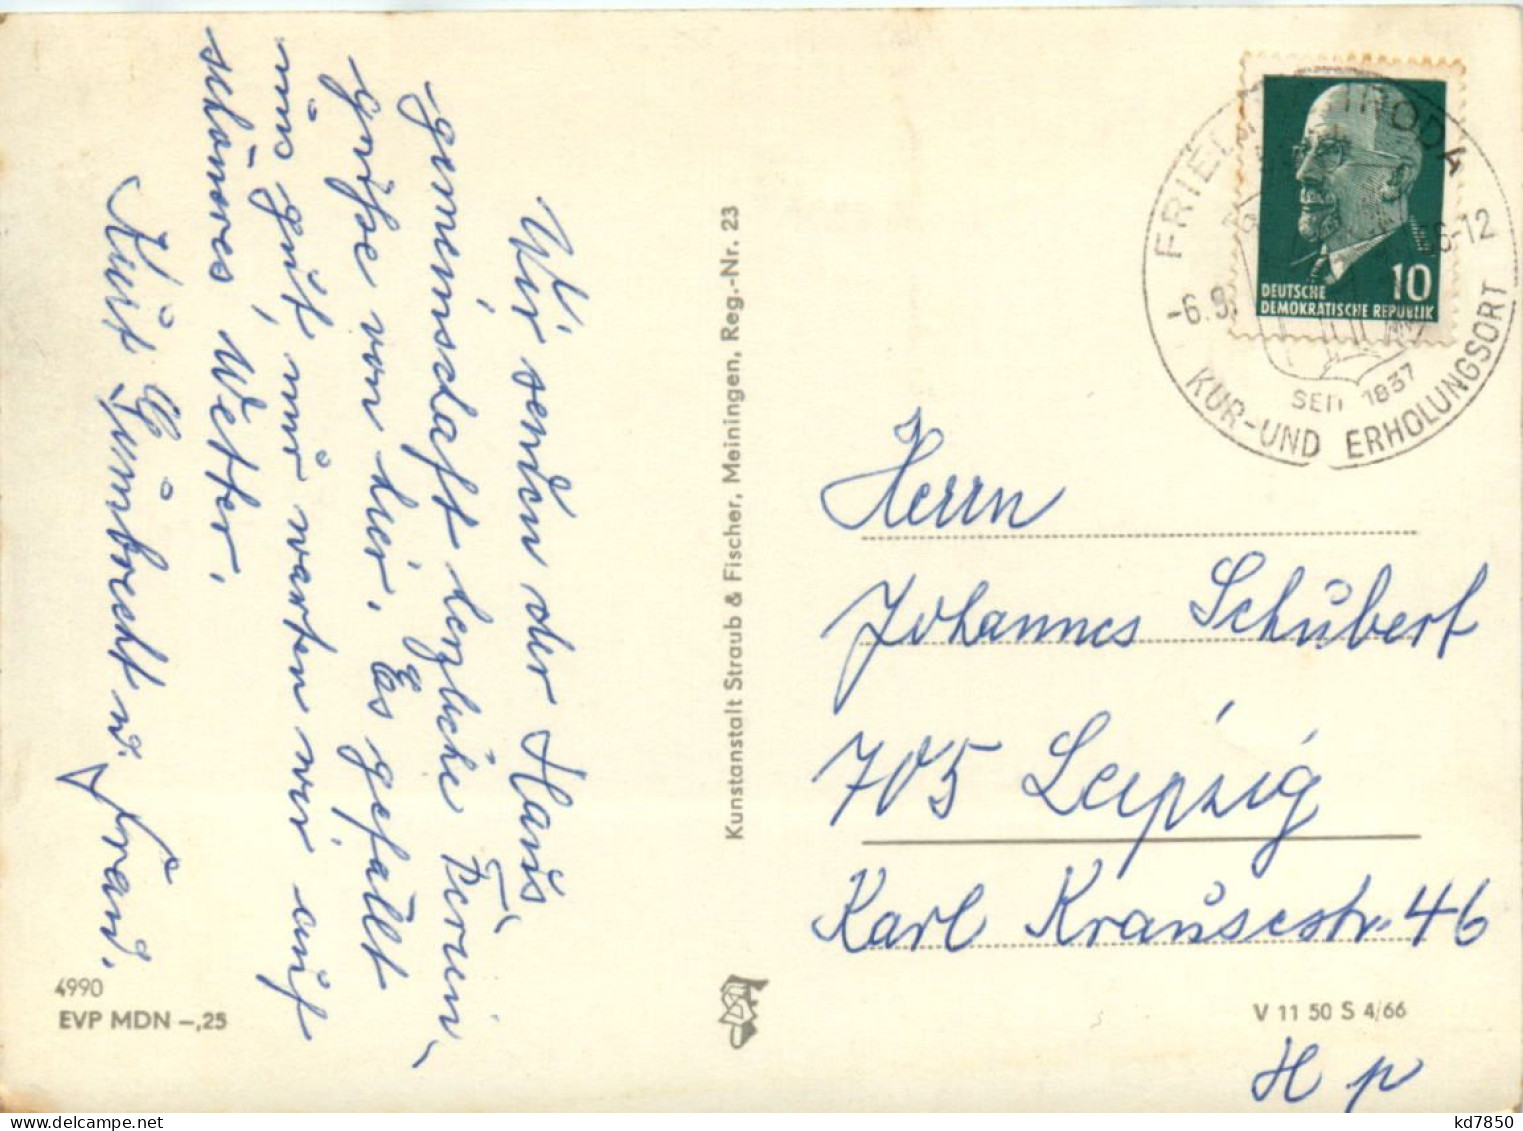 Wir senden der Haus-
gemeinschaft herzliche
Grüße von hier. Es gefällt
uns gut, nur warten wir auf
schönes Wetter.
Kurt Gumbrecht u. Frau.
Kunstanstalt Straub & Fischer, Meiningen, Reg.-Nr. 23
4990
EVP MDN –,25
DEUTSCHE
DEMOKRATISCHE REPUBLIK
10
-6.9.
6-12
SEIT 1837
KUR-UND ERHOLUNGSORT
Herrn
Johannes Schubert
705 Leipzig
Karl Krausestr. 46
V 11 50 S 4/66
H p
kd7850